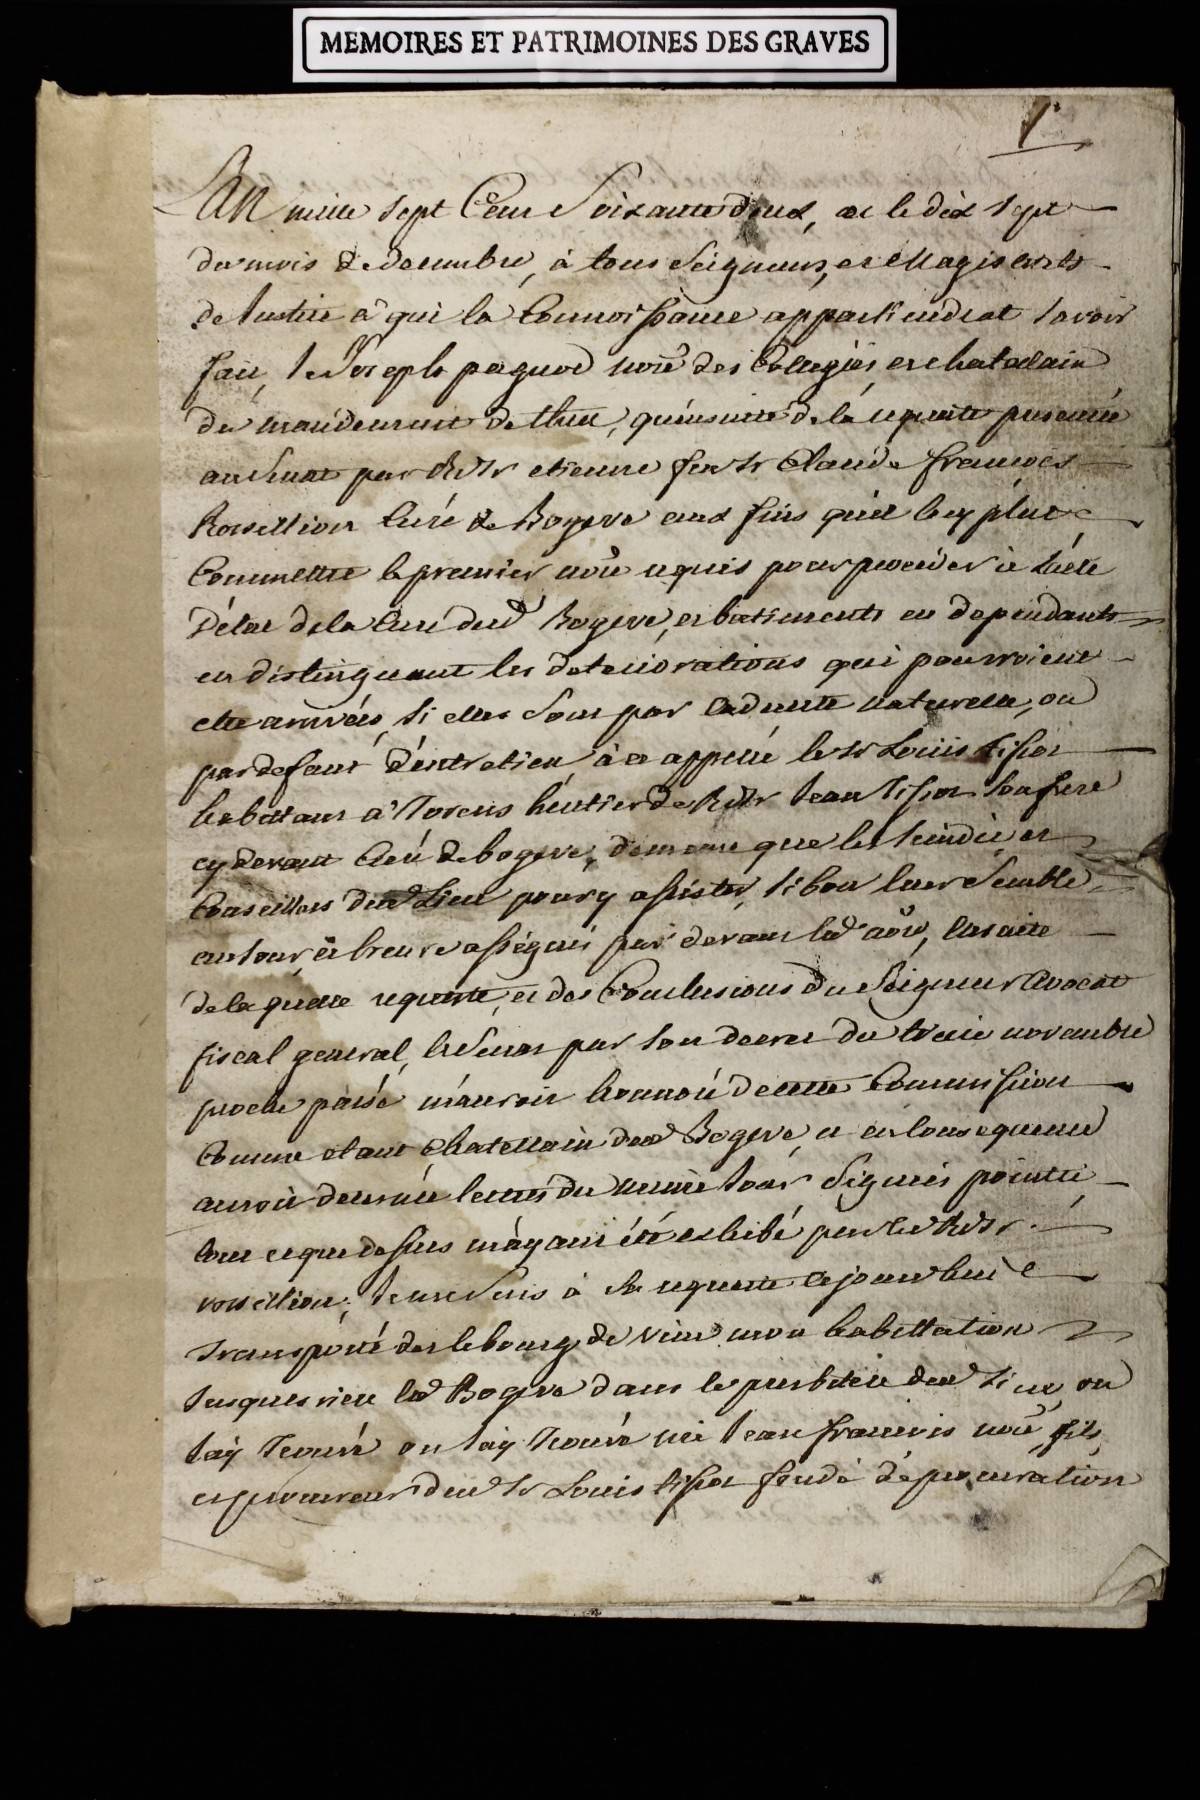 MEMOIRES ET PATRIMOINES DES GRAVES
1r
L'An mille sept Cent Soixante deux, et le dix sept
du mois de decembre, à tous Seigneurs, et Magistrats
de Justice à qui la Connoissance appartiendrat savoir
fais, Je Joseph pagnod nore des Collegiés et chatelain
du mandement de thiez, qu'ensuitte de la requette presentée
au Senat par Rd Sr etienne feu Sr Claude françois
Rossellion Curé de Bogeve aux fins qu'il luy plut
Commettre le premier nore requis pour proceder à l'acte
d'état de la Cure dud Bogeve, et batiments en dependants
en distinguant les deteriorations qui pourroient
etre arrivées, si elles sont par caducité naturelle, ou
par defaut d'entretien, à ce appellé le Sr Louis tissot
habittant à Torens héritier de Rd Sr Jean Tissot son frere
cy devant Curé de bogeve, de meme que les sindic, et
Conseillers dud Lieu pour y assister, si bon leur Semble,
au jour, et heure assignés par devant led nore, ensuite
de la quelle requette, et des Conclusions du Seigneur Avocat
fiscal general, le Senat par son decret du treize novembre
proche passé m'auroit honnoré de cette Commission
Comme etant Chatellain dud Bogeve, et en consequence
auroit decerné lettres du meme jour Signées
tout ce que dessus m'ayant été exhibé par led Rd Sr
rossellion, Je me suis à sa requette ce jourd'huy
transporté dès le bourg de viuz mon habittation
jusques rière led Bogeve dans le presbitère dud Lieu, ou
j'ay Trouvé ou j'ay Trouvé Me Jean françois nore, fils
et procureur dud Sr Louis tissot fondé de procuration